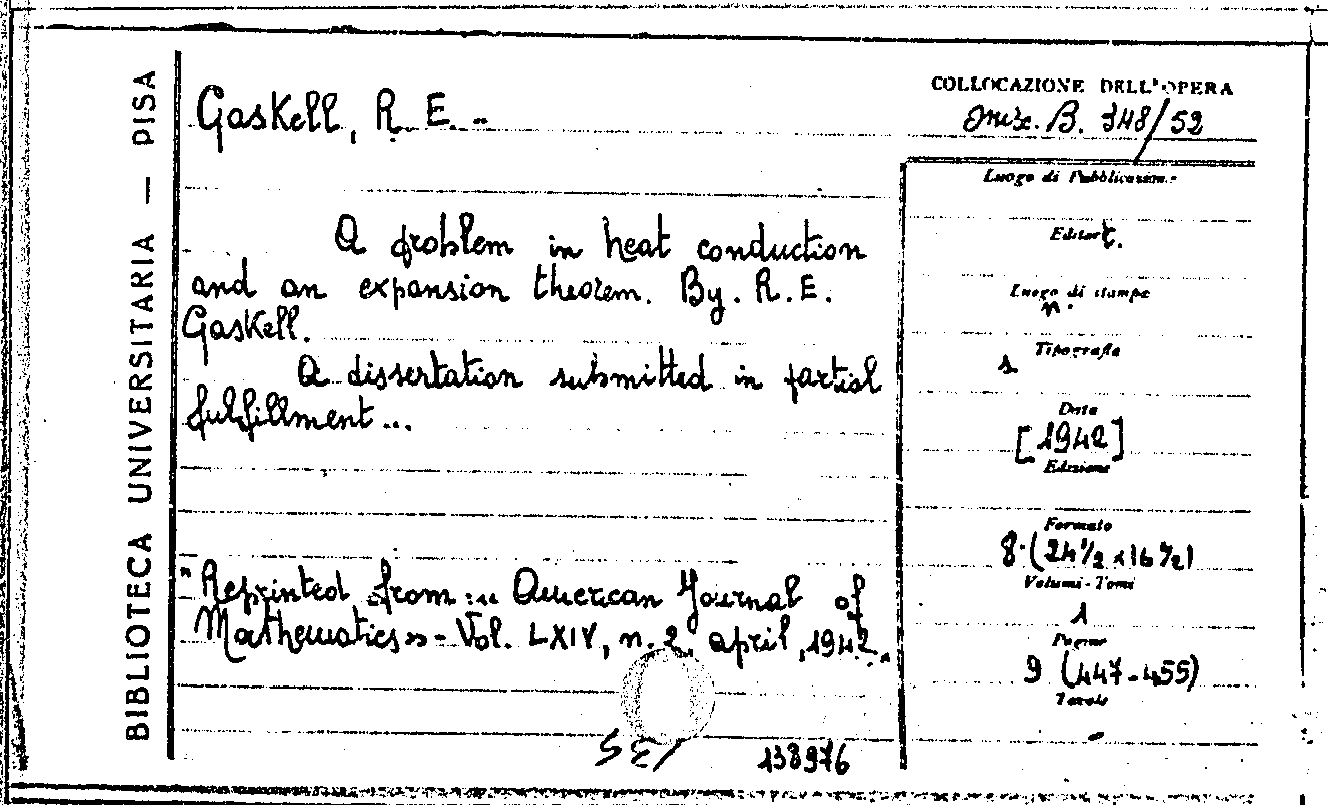 BIBLIOTECA UNIVERSITARIA — PISA
Gaskell, R. E. -
A problem in heat conduction
and an expansion theorem. By. R. E.
Gaskell.
A dissertation submitted in partial
fulfillment...
"Reprinted from... American Journal of
Mathematics» - Vol. LXIV, n. 2, april, 1942.
138976
COLLOCAZIONE DELL'OPERA
Misc. B. 348/52
Luogo di Pubblicazione
Editore
Luogo di stampa
n.
Tipografia
Data
[1942]
Edizione
Formato
8° (24 1/2 x 16 1/2)
Volumi - Tomi
1
Pagine
9 (447-455)
Tavole
-